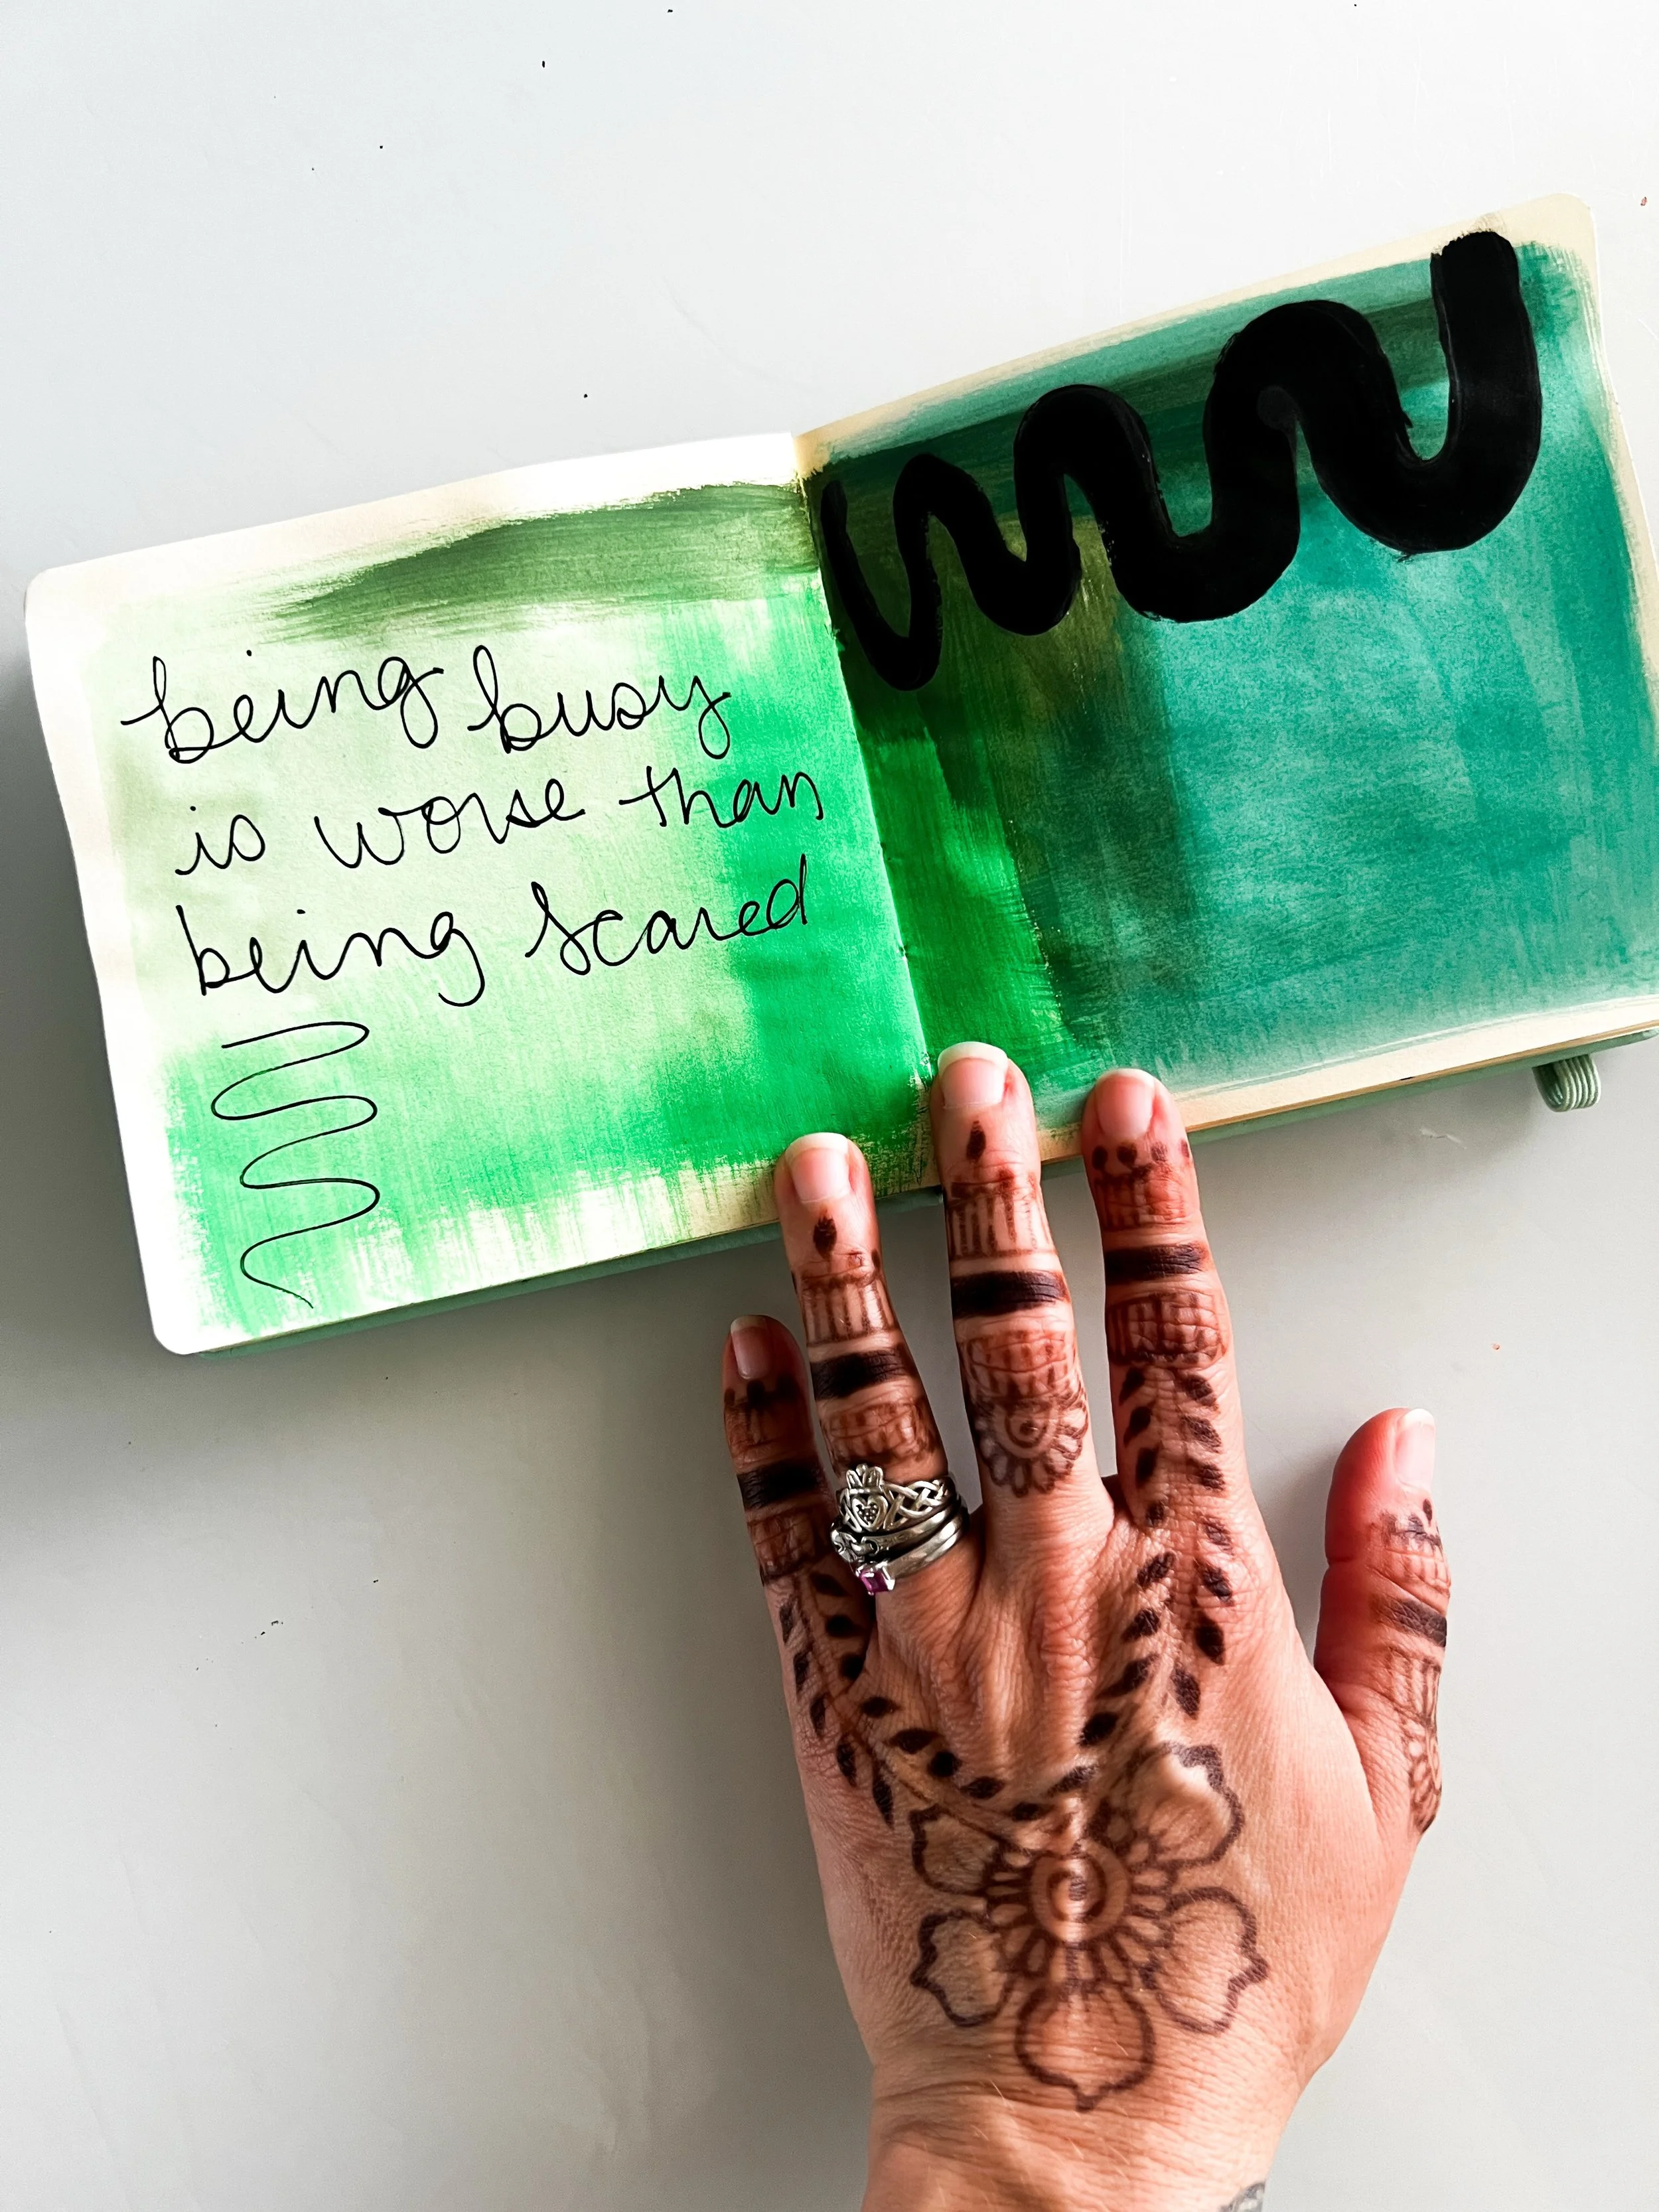 being busy
is worse than
being scared